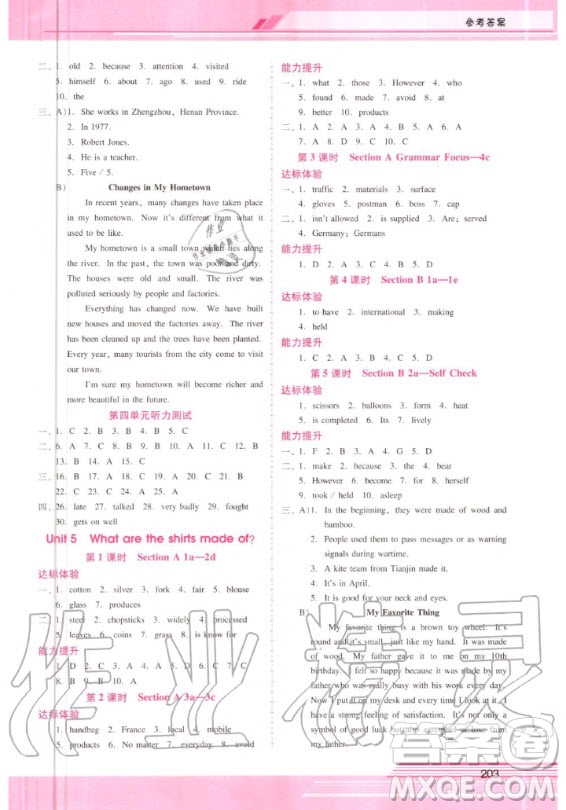 参考答案
二、1. old 2. because 3. attention 4. visited
5. himself 6. about 7. ago 8. used 9. ride
10. the
三、A) 1. She works in Zhengzhou, Henan Province.
2. In 1977.
3. Robert Jones.
4. He is a teacher.
5. Five / 5.
B) Changes in My Hometown
In recent years, many changes have taken place
in my hometown. Now it's different from what it
used to be like.
My hometown is a small town which lies along
the river. In the past, the town was poor and dirty.
The houses were old and small. The river was
polluted seriously by people and factories.
Everything has changed now. We have built
new houses and moved the factories away. The river
has been cleaned up and the trees have been planted.
Every year, many tourists from the city come to visit
our town.
I'm sure my hometown will become richer and
more beautiful in the future.
第四单元听力测试
一、1. C 2. B 3. B 4. C 5. C
二、6. A 7. C 8. B 9. C 10. B 11. C 12. B
13. B 14. A 15. C
三、16. B 17. A 18. C 19. C 20. C 21. B
22. C 23. C 24. A 25. B
四、26. late 27. talked 28. very badly 29. fought
30. gets on well
Unit 5 What are the shirts made of?
第 1 课时 Section A 1a—2d
达标体验
一、1. cotton 2. silver 3. fork 4. fair 5. blouse
6. glass 7. produces
二、1. steel 2. chopsticks 3. widely 4. processed
5. leaves 6. coins 7. grass 8. is know for
能力提升
8. B 9. B
第 2 课时 Section A 3a—3c
达标体验
1. handbag 2. France 3. local 4. mobile
5. products 6. No matter 7. everyday 8. avoid
能力提升
一、1. what 2. those 3. However 4. who
5. found 6. made 7. avoid 8. at
9. better 10. products
二、1. A 2. A 3. D 4. C 5. A 6. C
7. A 8. D 9. C 10. A
第 3 课时 Section A Grammar Focus—4c
达标体验
一、1. traffic 2. materials 3. surface
4. gloves 5. postman 6. boss 7. cap
二、1. isn't allowed 2. is supplied 3. Are; served
4. Germany; Germans
能力提升
1. D 2. A 3. C 4. B 5. D
第 4 课时 Section B 1a—1e
达标体验
1. to have 2. international 3. making
4. held
能力提升
1. C 2. B 3. A 4. C 5. D
第 5 课时 Section B 2a—Self Check
达标体验
1. scissors 2. balloons 3. form 4. heat
5. is completed 6. Its 7. lively
能力提升
一、1. B 2. F 3. A 4. G 5. D
二、1. make 2. because 3. the 4. bear
5. However 6. become 7. highly 8. before
9. took / held 10. and
三、A) 1. In the beginning, they were made of wood and
bamboo.
2. People used them to pass messages or as warning
signals during wartime.
3. A kite team from Tianjin made it.
4. It's in April.
5. It is good for your neck and eyes.
B) My Favorite Thing
My favorite thing is a brown toy wheel. It's
round and it's small, just like my hand. It was made
of wood. My father gave it to me on my 10th
birthday. I felt so happy because it was made by my
father who was really busy with his work every day.
Now I put it on my desk and every time I look at it, I
have a strong feeling of satisfaction. It's not only a
my father.
203
作业精灵
答案圈
MXQE.COM